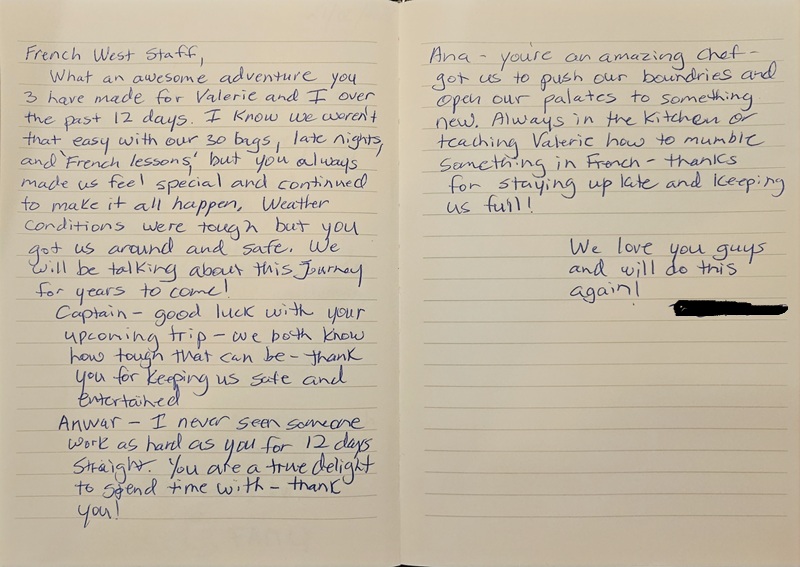 French West Staff,
What an awesome adventure you
3 have made for Valerie and I over
the past 12 days. I know we weren't
that easy with our 30 bags, late nights,
and 'French lessons,' but you always
made us feel special and continued
to make it all happen. Weather
conditions were tough but you
got us around and safe. We
will be talking about this Journey
for years to come!
Captain - good luck with your
upcoming trip - we both know
how tough that can be - thank
you for keeping us safe and
entertained
Anwar - I never seen someone
work as hard as you for 12 days
straight. You are a true delight
to spend time with - thank
you!
Ana - you're an amazing chef -
got us to push our boundries and
open our palates to something
new. Always in the kitchen or
teaching Valerie how to mumble
something in French - thanks
for staying up late and keeping
us full!
We love you guys
and will do this
again!